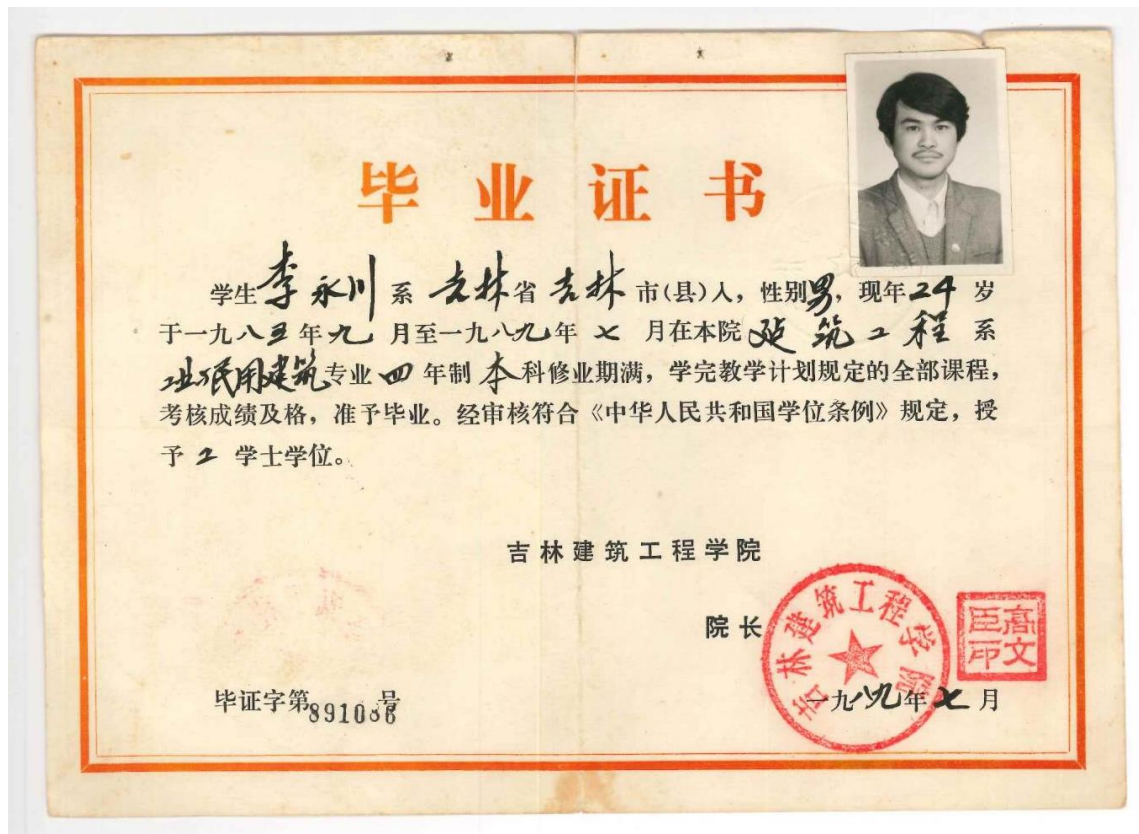 毕业证书
学生李永川系吉林省吉林市(县)人，性别男，现年24岁
于一九八五年九月至一九八九年七月在本院建筑工程系
工业与民用建筑专业四年制本科修业期满，学完教学计划规定的全部课程，
考核成绩及格，准予毕业。经审核符合《中华人民共和国学位条例》规定，授
予工学士学位。
吉林建筑工程学院
院长
吉林建筑工程学院
高文臣印
一九八九年七月
毕证字第891086号